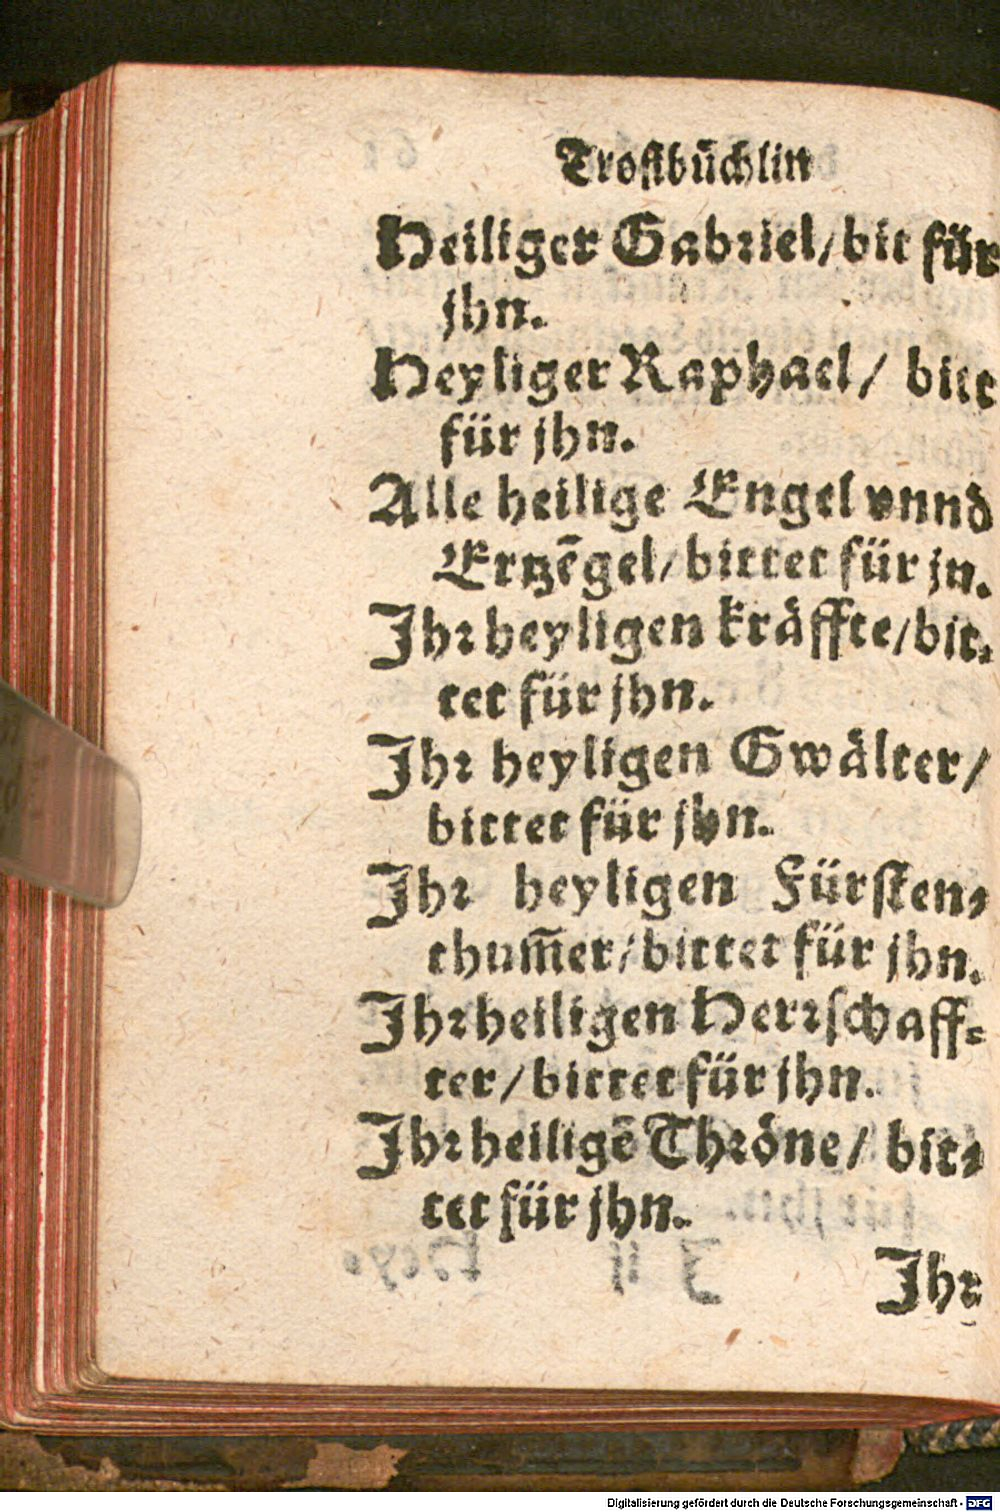 Trostbüchlin
Heiliger Gabriel/bit für
jhn.
Heyliger Raphael/ bitt
für jhn.
Alle heilige Engel vnnd
Ertzēgel/bittet für jn.
Ihr heyligen kräffte/bit-
tet für jhn.
Ihr heyligen Gwälter/
bittet für jhn.
Ihr heyligen Fürsten-
thum̄er/bittet für jhn.
Ihr heiligen Herrschaff-
ter/bittet für jhn.
Ihr heiligē Thröne/ bit-
tet für jhn.
Ihr
Digitalisierung gefördert durch die Deutsche Forschungsgemeinschaft - DFG